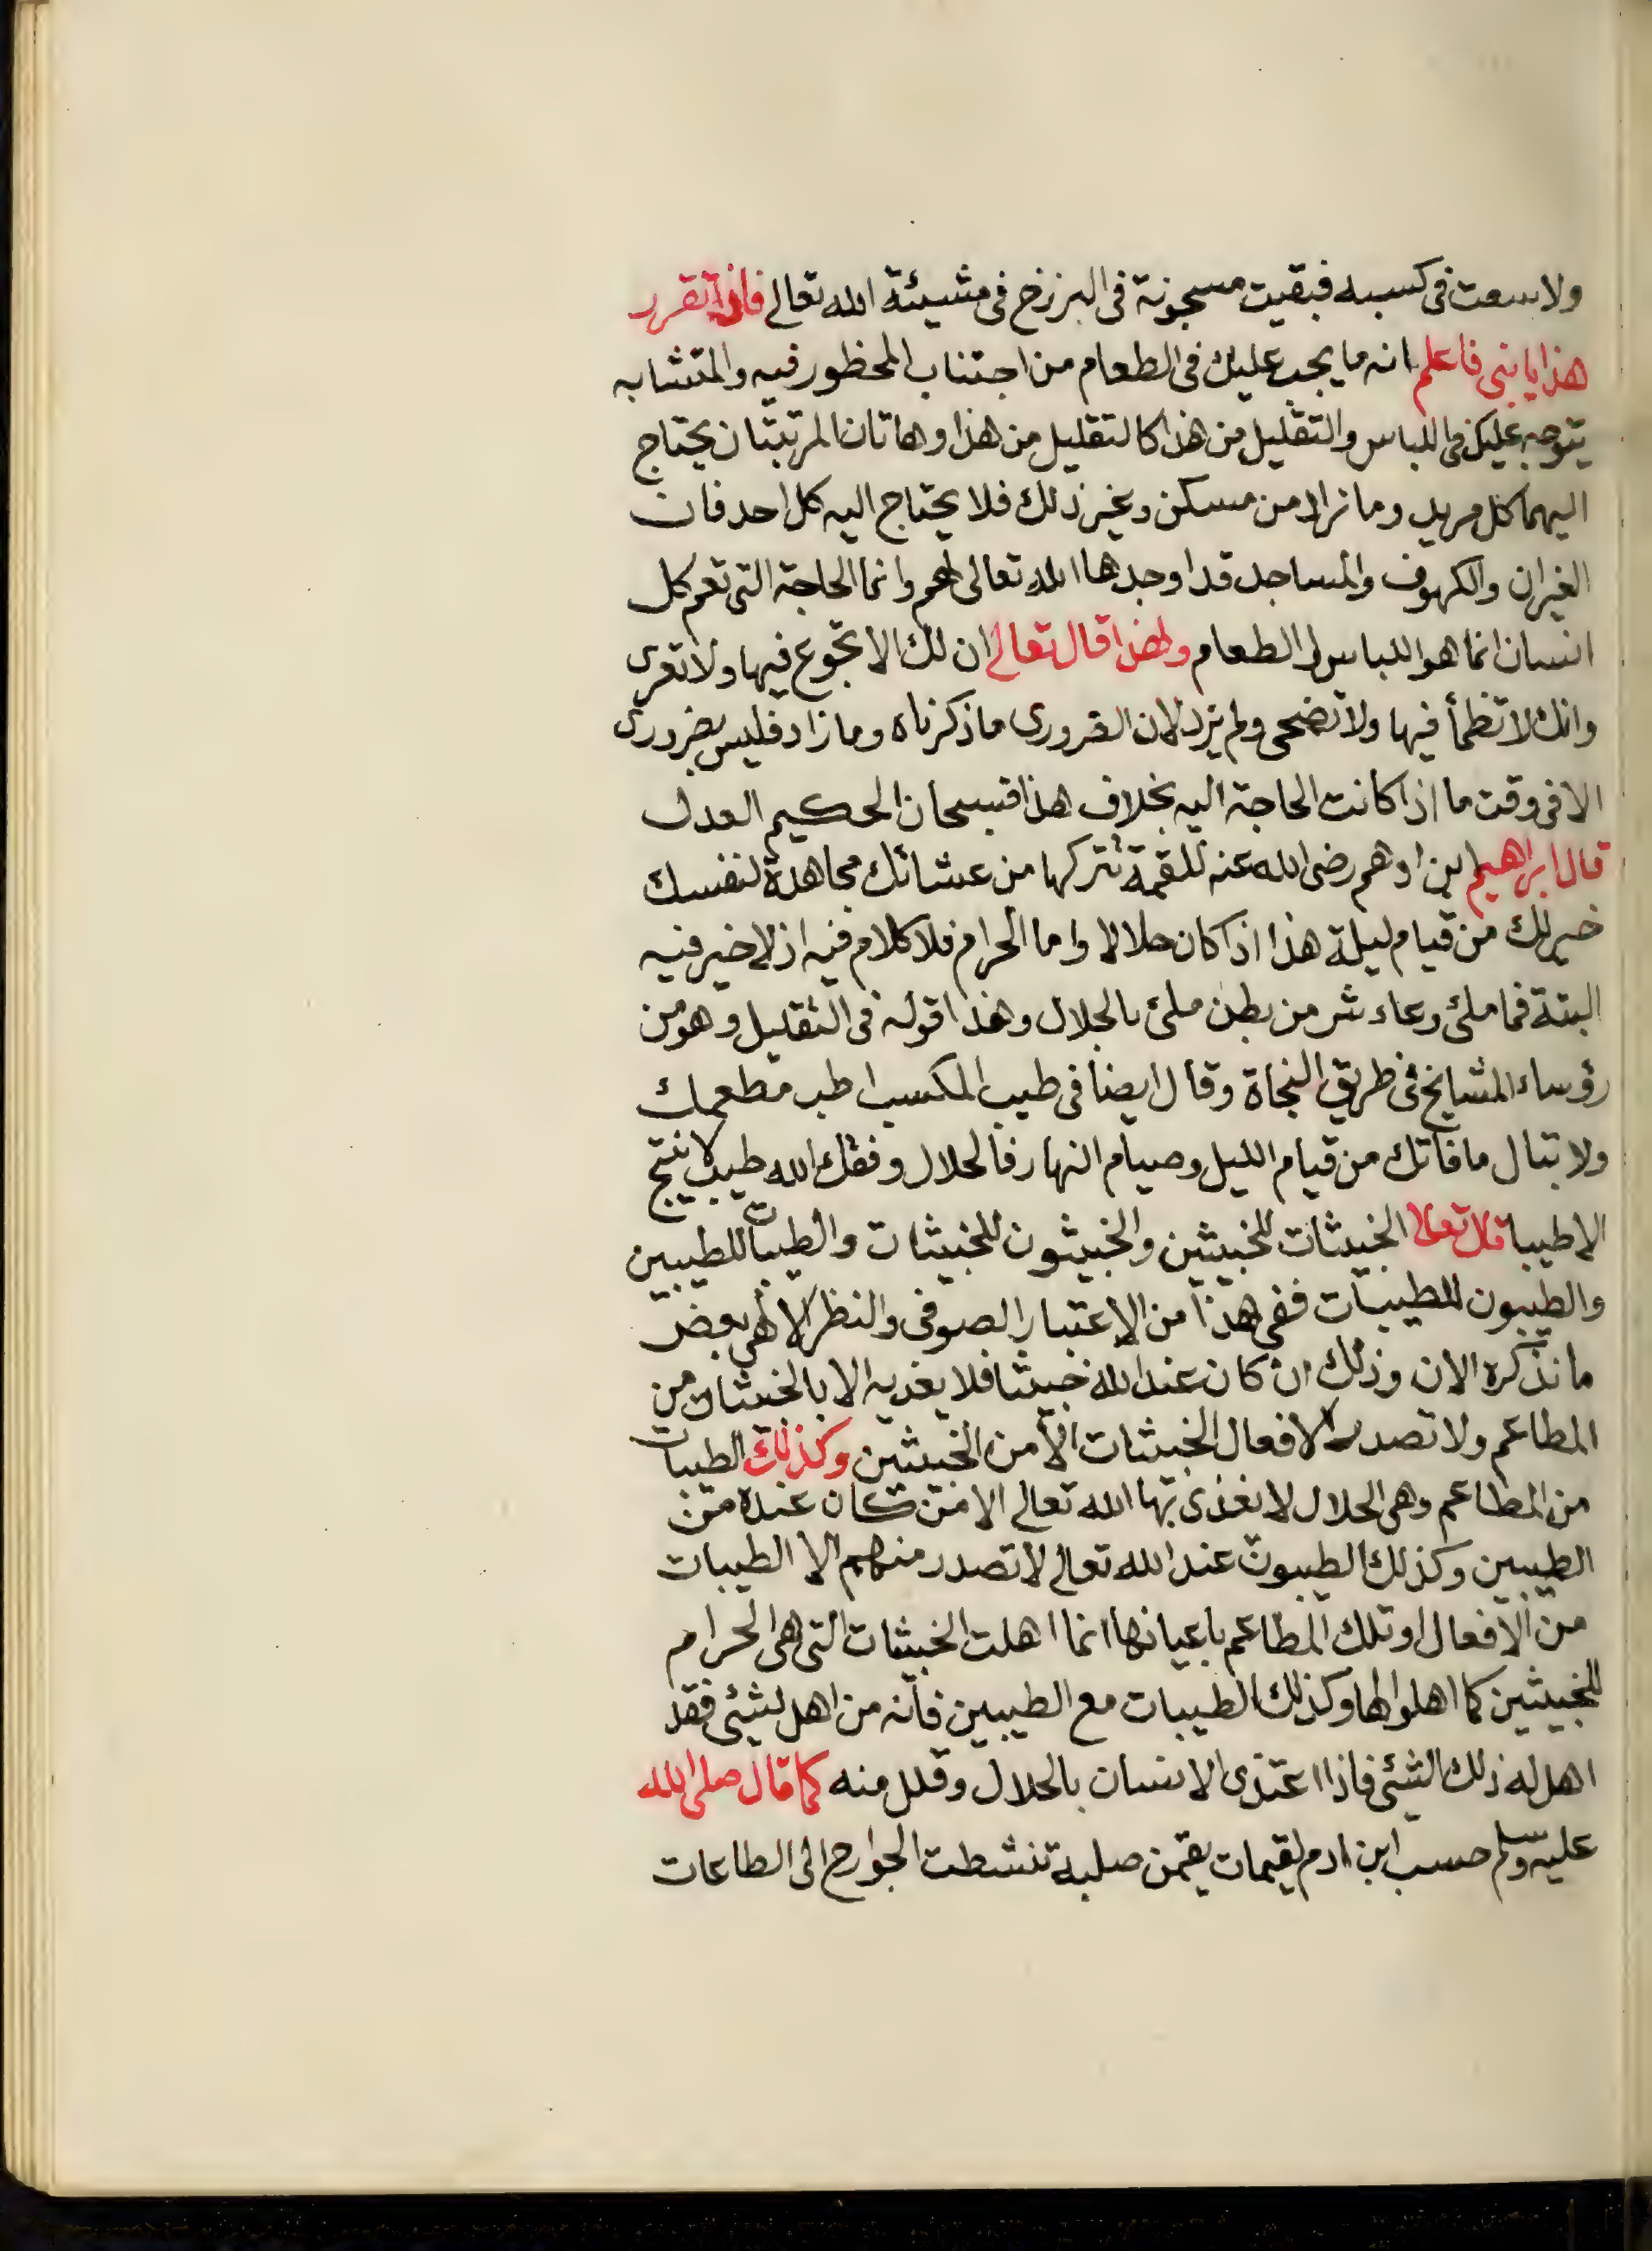 ولا سعت فى كسبه فبقيت مسجونة فى البرزخ فى مشيئة الله تعالى فاذا تقرر
هذا يا بنى فاعلم انه ما يجب عليك فى الطعام من اجتناب المحظور فيه والمتشابه
يتوجه عليك فى اللباس والتقليل من هذا كالتقليل من هذا وهاتان المرتبتان يحتاج
اليهما كل مريد وما زاد من مسكن وغير ذلك فلا يحتاج اليه كل احد فان
الغيران والكهوف والمساجد قد اوجدها الله تعالى لهم وانما الحاجة التى تعم كل
انسان انما هو اللباس والطعام ولهذا قال تعالى ان لك الا تجوع فيها ولا تعرى
وانك لا تظمأ فيها ولا تضحى ولم يزد لان الضرورى ما ذكرناه وما زاد فليس بضرورى
الا فى وقت ما اذا كانت الحاجة اليه بخلاف هذا فسبحان الحكيم العدل
قال ابراهيم ابن ادهم رضى الله عنه للقمة تتركها من عشائك مجاهدة لنفسك
خير لك من قيام ليلة هذا اذا كان حلالا واما الحرام فلا كلام فيه اذ لا خير فيه
البتة فما ملئ وعاء شر من بطن ملئ بالحلال وهذا قوله فى التقليل وهو من
رؤساء المشايخ فى طريق النجاة وقال ايضا فى طيب المكسب اطب مطعمك
ولا تبال ما فاتك من قيام الليل وصيام النهار فالحلال وفقك الله طيب لا ينتج
الا طيبا قال تعالى الخبيثات للخبيثين والخبيثون للخبيثات والطيبات للطيبين
والطيبون للطيبات ففى هذا من الاعتبار الصوفى والنظر الالهى بعض
ما نذكره الان وذلك ان كان عند الله خبيثا فلا يغذيه الا بالخبيثات من
المطاعم ولا تصدر الافعال الخبيثات الا من الخبيثين وكذلك الطيبات
من المطاعم وهى الحلال لا يغذى بها الله تعالى الا من كان عنده من
الطيبين وكذلك الطيبون عند الله تعالى لا تصدر منهم الا الطيبات
من الافعال او تلك المطاعم باعيانها انما اهلت الخبيثات التى هى الحرام
للخبيثين كما اهلوا لها وكذلك الطيبات مع الطيبين فانه من اهل لشئى فقد
اهل له ذلك الشئى فاذا اغتذى الانسان بالحلال وقلل منه كما قال صلى الله
عليه وسلم حسب ابن ادم لقيمات يقمن صلبه تنشطت الجوارح الى الطاعات